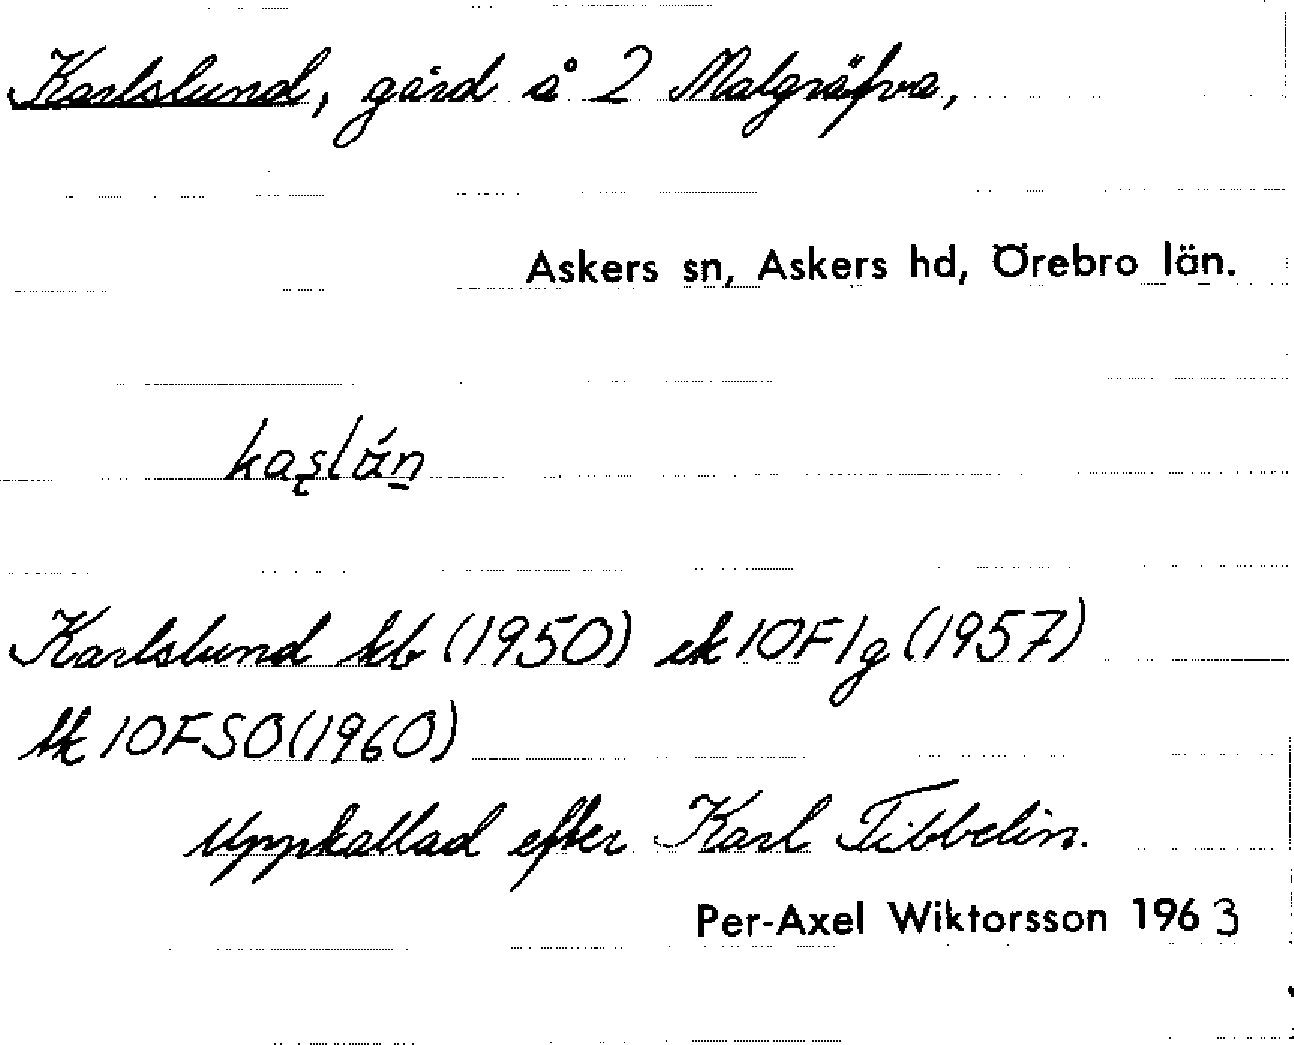 Karlslund, gård å 2 Malgräfva,
Askers sn, Askers hd, Örebro län.
kaslán
Karlslund kb (1950) ek 10F1g (1957)
tk 10FSO (1960)
Uppkallad efter Karl Tibbelin.
Per-Axel Wiktorsson 1963